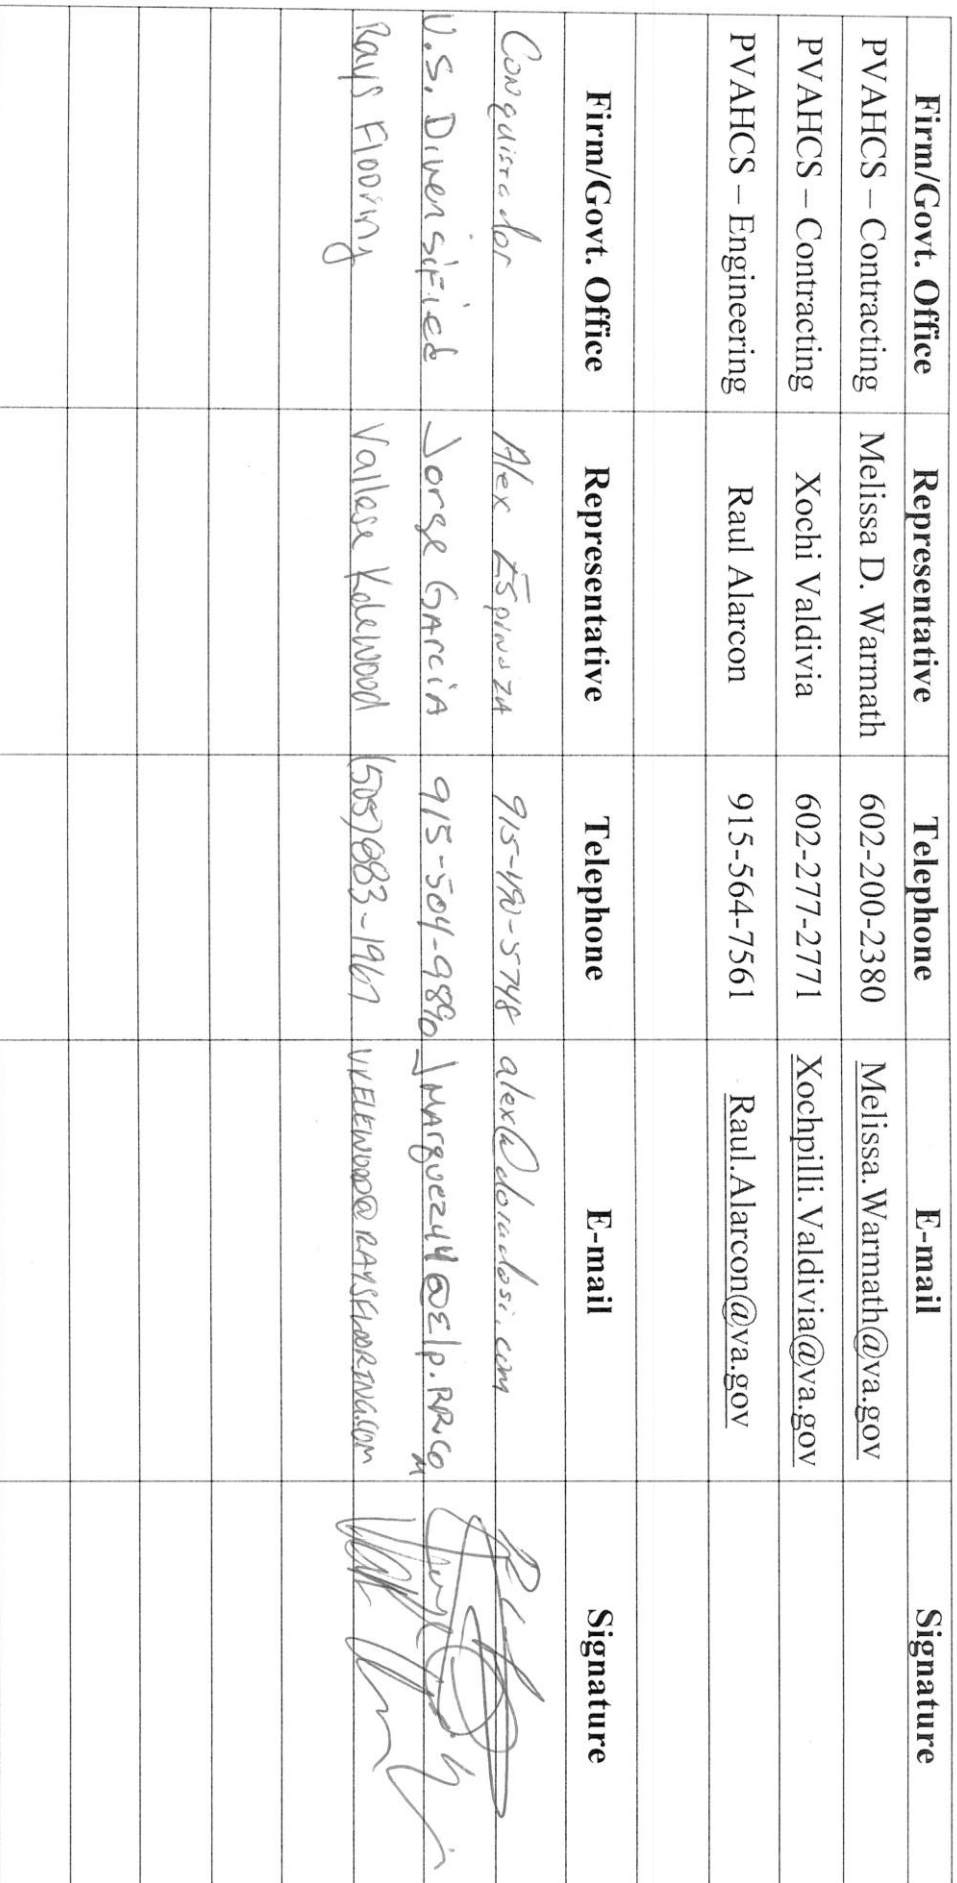 Firm/Govt. Office Representative Telephone E-mail Signature
PVAHCS – Contracting Melissa D. Warmath 602-200-2380 Melissa.Warmath@va.gov
PVAHCS – Contracting Xochi Valdivia 602-277-2771 Xochpilli.Valdivia@va.gov
PVAHCS – Engineering Raul Alarcon 915-564-7561 Raul.Alarcon@va.gov
Firm/Govt. Office Representative Telephone E-mail Signature
Conquistador Alex Espinoza 915-490-5748 alex@doradosi.com
U.S. Diversified Jorge Garcia 915-504-9890 JMarquez44@Elp.RR.com
Rays Flooring Vallese Kelewood (505)883-1967 VKELEWOOD@RAYSFLOORING.COM